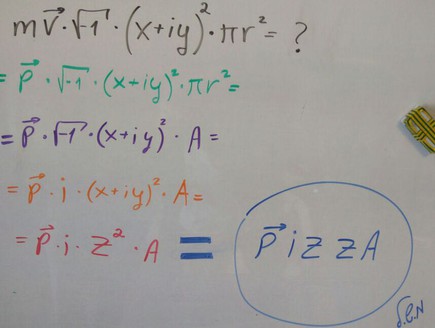 mv⃗·√-1·(x+iy)²·πr²= ?
= p⃗·√-1·(x+iy)²·πr²=
= p⃗·√-1·(x+iy)²·A=
= p⃗·i·(x+iy)²·A=
= p⃗·i·z²·A = p⃗izzA